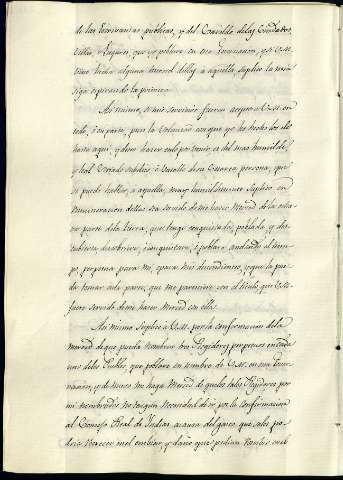 de las Escrivanias públicas, y del Cavildo delas Ciudades,
Villas, y Lugares, que se poblaren en mi Governacion, y si V.M.
tiene hecha alguna merced dellas à aquella, suplico la mia
siga espirando la primera.
Asi mismo, si mis servicios fueren aceptos à V.M. en
todo, ó en parte, pues la voluntad con que yo los he hecho los de
hasta aqui, y deseo hacer en lo por venir, es del mas humilde,
y leal Criado subdito, ó Vasallo de su Cesarea persona, que
se puede hallar, à aquella, muy humildemente suplico en
remuneracion dellos sea servido de me hacer Merced de la octa-
va parte dela tierra, que tengo conquistada, poblada, y des-
cubierta, descubriere, conquistare, è poblare, andando el tiem-
po, perpetua para mi, è para mis descendientes, y que la pue-
da tomar en la parte, que me pareciere con el titulo que V.M.
fuere servido de me hacer Merced con ella.
Asi mismo Suplico à V.M. por la confirmacion dela
merced de que pueda nombrar tres Regidores perpetuos en cada
uno delos Pueblos, que poblare en nombre de V.M. en esta Gover-
nacion, y demas me haga Merced de que los tales Regidores por
mi nombrados, no tengan necesidad de ir por la confirmacion
al Consejo Real de Indias, à causa del gasto, que, à los po-
dria recrecer en el embiar, y daño que podrian recivir en el